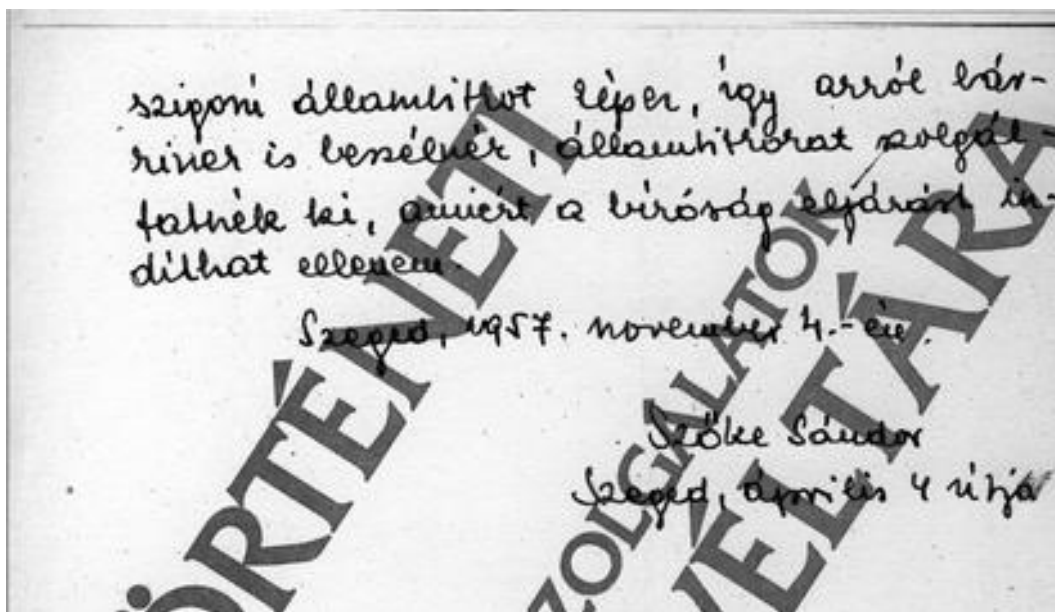 szigorú államtitkot képez, így arról bár-
kinek is beszélnék, államtitkokat szolgál-
tatnék ki, amiért a bíróság eljárást in-
díthat ellenem.
Szeged, 1957. november 4.-én.
Szőke Sándor
Szeged, április 4 útja
TÖRTÉNETI
SZOLGÁLATOK
LEVÉLTÁRA